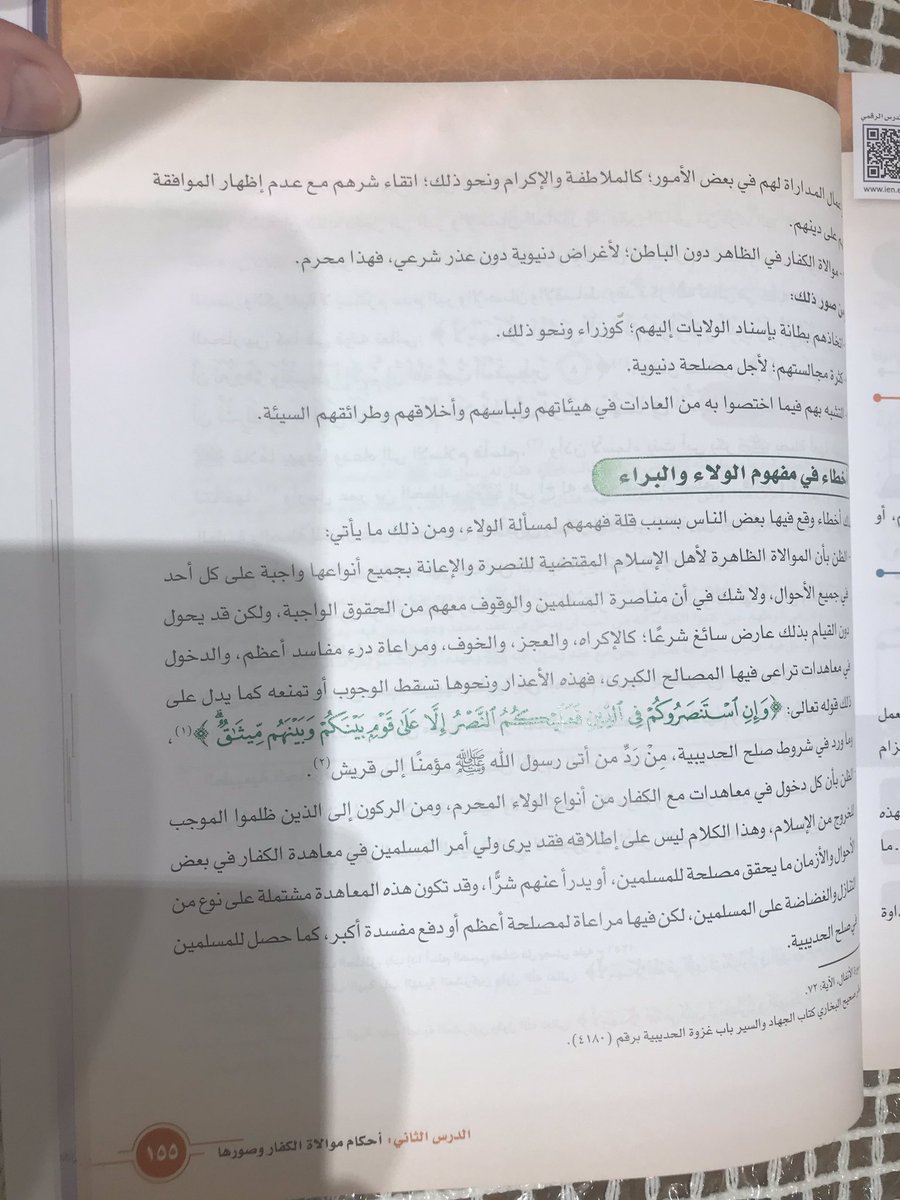 المداراة لهم في بعض الأمور؛ كالملاطفة والإكرام ونحو ذلك؛ اتقاء شرهم مع عدم إظهار الموافقة
على دينهم.
موالاة الكفار في الظاهر دون الباطن؛ لأغراض دنيوية دون عذر شرعي، فهذا محرم.
صور ذلك:
اتخاذهم بطانة بإسناد الولايات إليهم؛ كوزراء ونحو ذلك.
كثرة مجالستهم؛ لأجل مصلحة دنيوية.
التشبه بهم فيما اختصوا به من العادات في هيئاتهم ولباسهم وأخلاقهم وطرائقهم السيئة.
أخطاء في مفهوم الولاء والبراء
أخطاء وقع فيها بعض الناس بسبب قلة فهمهم لمسألة الولاء، ومن ذلك ما يأتي:
الظن بأن الموالاة الظاهرة لأهل الإسلام المقتضية للنصرة والإعانة بجميع أنواعها واجبة على كل أحد
في جميع الأحوال، ولا شك في أن مناصرة المسلمين والوقوف معهم من الحقوق الواجبة، ولكن قد يحول
دون القيام بذلك عارض سائغ شرعًا؛ كالإكراه، والعجز، والخوف، ومراعاة درء مفاسد أعظم، والدخول
في معاهدات تراعى فيها المصالح الكبرى، فهذه الأعذار ونحوها تسقط الوجوب أو تمنعه كما يدل على
ذلك قوله تعالى: ﴿وَإِنِ ٱسْتَنصَرُوكُمْ فِى ٱلدِّينِ فَعَلَيْكُمُ ٱلنَّصْرُ إِلَّا عَلَىٰ قَوْمٍۭ بَيْنَكُمْ وَبَيْنَهُم مِّيثَٰقٌۗ﴾(١)،
وما ورد في شروط صلح الحديبية، مِنْ رَدِّ من أتى رسول الله ﷺ مؤمنًا إلى قريش(٢).
الظن بأن كل دخول في معاهدات مع الكفار من أنواع الولاء المحرم، ومن الركون إلى الذين ظلموا الموجب
للخروج من الإسلام، وهذا الكلام ليس على إطلاقه فقد يرى ولي أمر المسلمين في معاهدة الكفار في بعض
الأحوال والأزمان ما يحقق مصلحة للمسلمين، أو يدرأ عنهم شرًّا، وقد تكون هذه المعاهدة مشتملة على نوع من
التنازل والغضاضة على المسلمين، لكن فيها مراعاة لمصلحة أعظم أو دفع مفسدة أكبر، كما حصل للمسلمين
في صلح الحديبية.
سورة الأنفال، الآية: ٧٢.
صحيح البخاري كتاب الجهاد والسير باب غزوة الحديبية برقم (٤١٨٠).
الدرس الثاني: أحكام موالاة الكفار وصورها
١٥٥
الدرس الرقمي
www.ien.e
، أو
هذه